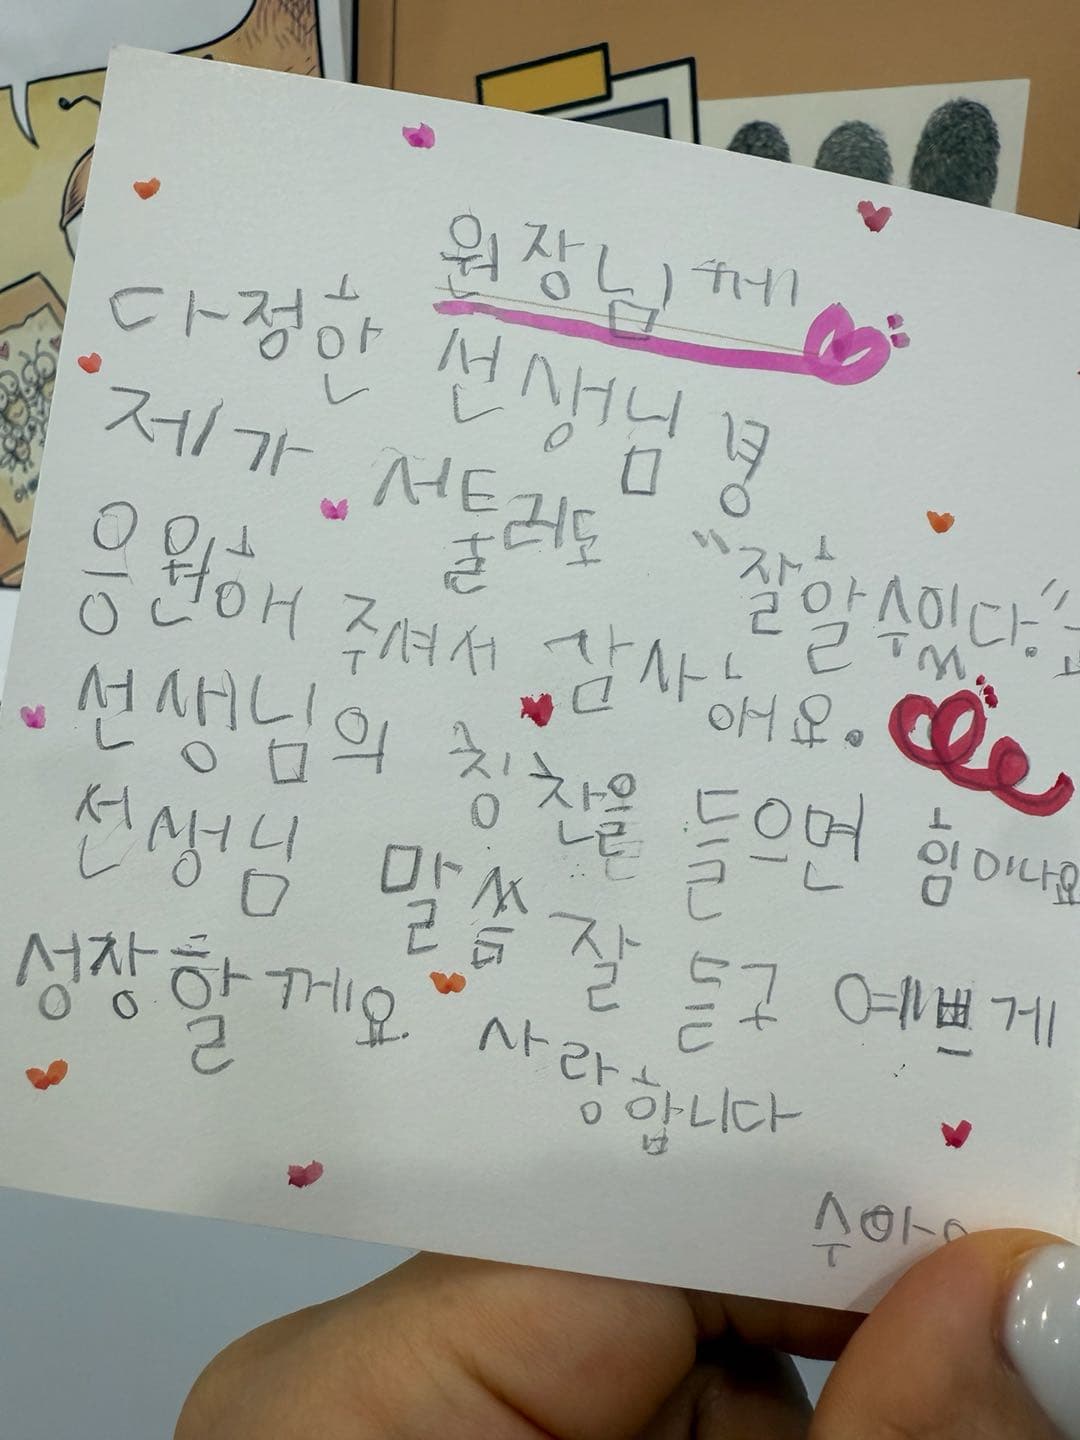 원장님께
다정한 선생님
제가 서툴러도 "잘할 수있다."
응원해 주셔서 감사해요.
선생님의 칭찬을 들으면 힘이나요
선생님 말씀 잘 듣구 예쁘게
성장할께요 사랑합니다
수아